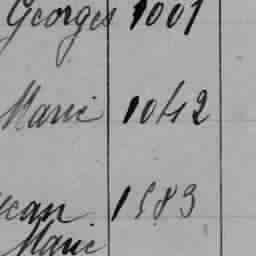 Georges 1001
Marie 1042
Jean 1583
Marie